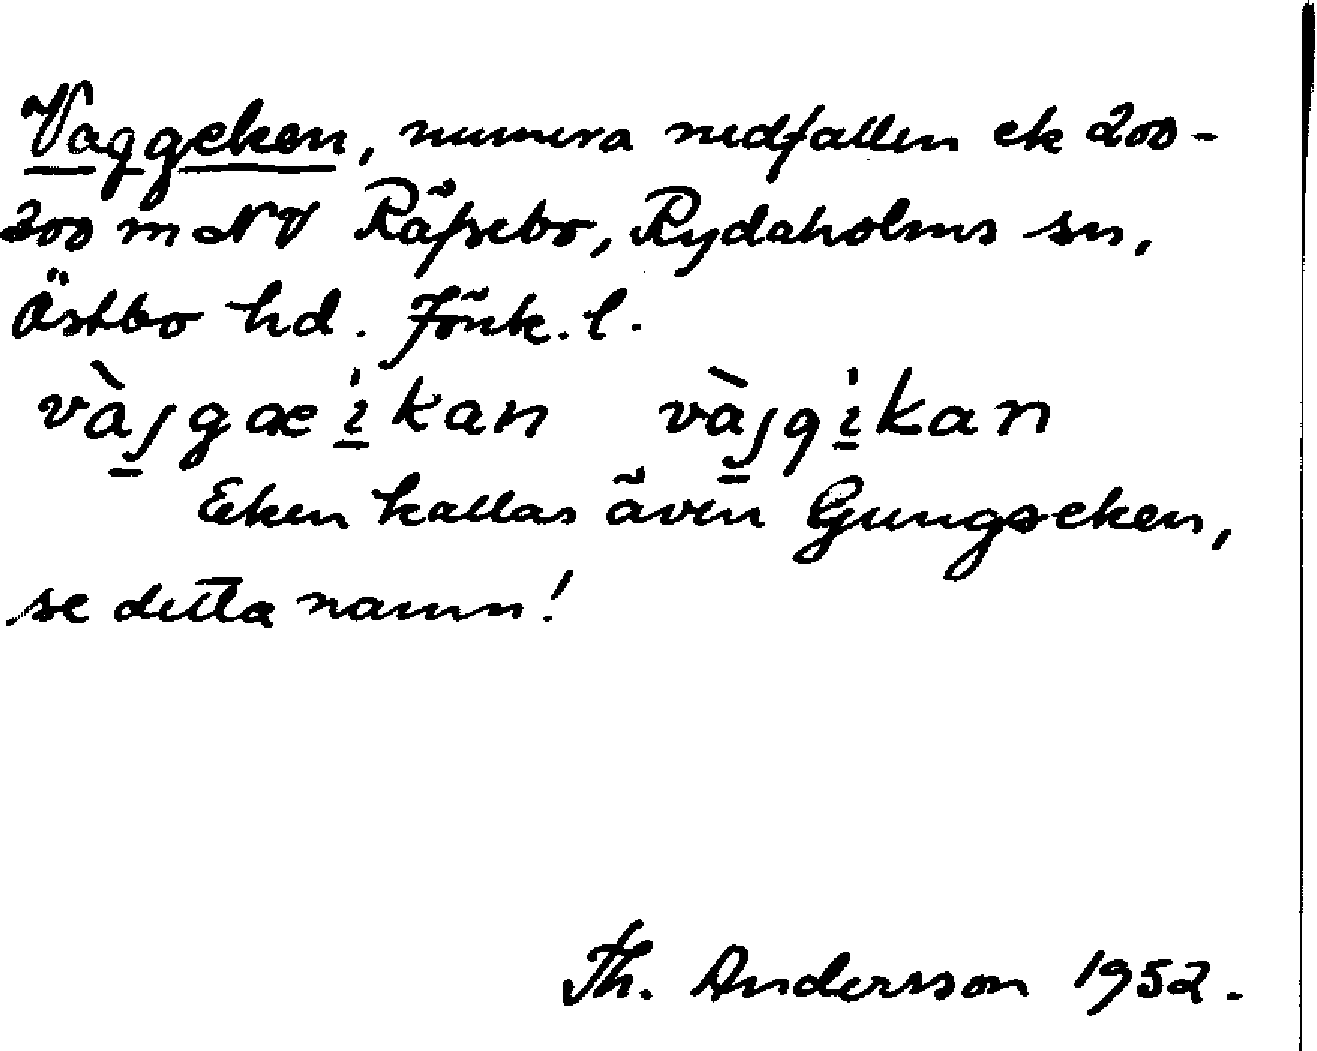 Vaggeken, numera nedfallen ek 200-
300 m NV Räpsebo, Rydaholms sn,
Östbo hd. Jönk. l.
vàgga̱ i̱kan vàggi̱kan
Eken kallas även Gungeeken,
se detta namn!
Th. Andersson 1952.